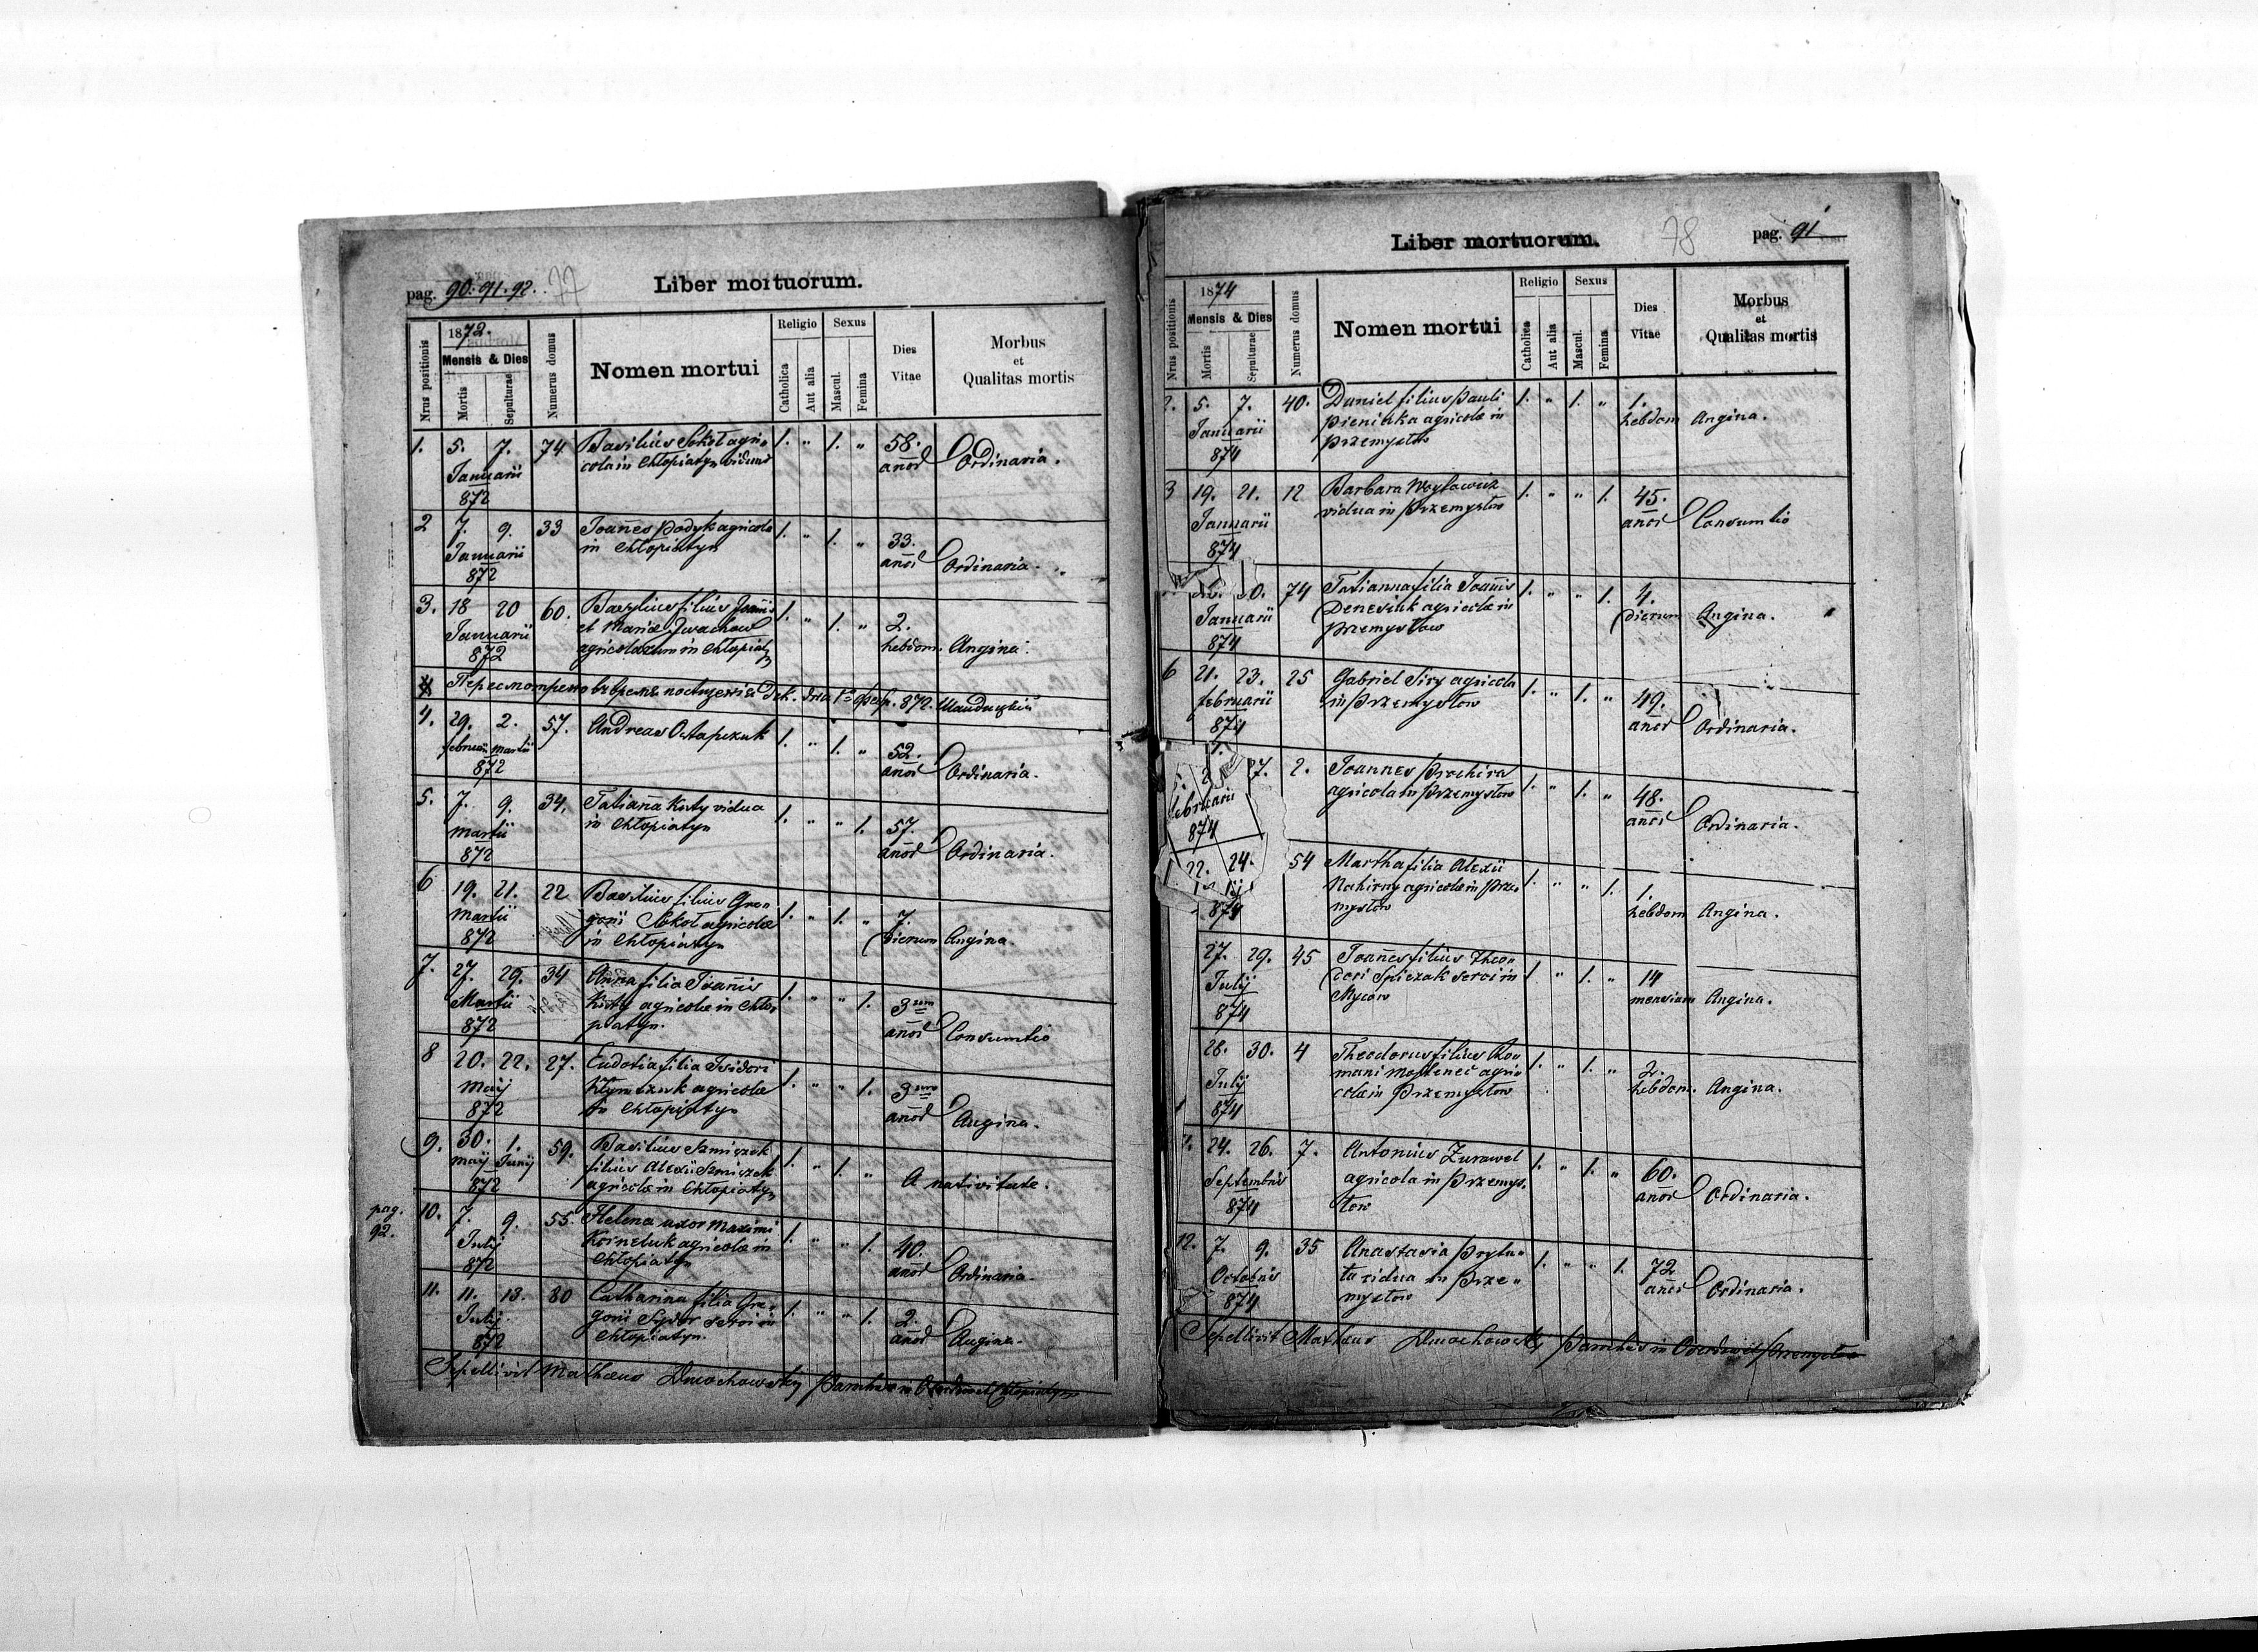 pag. 90. 91. 92. 77
Liber mortuorum.
Nrus positionis
1872.
Mensis & Dies
Mortis
Sepulturae
Numerus domus
Nomen mortui
Religio
Catholica
Aut alia
Sexus
Mascul.
Femina
Dies
Vitae
Morbus
et
Qualitas mortis
1. 5. 7. 74 Basilius Sokoł agri„ 1. „ 1. „ 58.
Januarii cola in Chłopiatyn viduus anor Ordinaria.
872
2 7. 9. 33 Joanes Podyk agricola 1. „ 1. „ 33.
Januarii in Chłopiatyn anor Ordinaria.
872
3. 18 20 60. Basylius filius Joanis 1. „ 1. „ 2.
Januarii et Mariæ Iwachow hebdom. Angina.
872 agricolarum in Chłopiatyn
4. 29. 2. 57. Andreas Ostapczuk 1. „ 1. „ 52.
februarii Martii anor Ordinaria.
872
5. 7. 9. 34. Tatiana Kuty vidua 1. „ „ 1. 57.
Martii in Chłopiatyn anor Ordinaria.
872
6 19. 21. 22 Basilius filius Gre„ 1. „ 1. „ 7.
Martii gorii Sokoł agricolæ dierum Angina.
872 in Chłopiatyn
7. 27. 29. 34 Anna filia Joanis 1. „ „ 1. 3
Martii Kuty agricolæ in Chło„ anor Consumtio
872 piatyn.
8 20. 22. 27. Eudotia filia Isidori 1. „ „ 1. 3
Maij Kłymczuk agricolæ anor Angina.
872 in Chłopiatyn
9. 30. 1. 59. Basilius Szmiszek 1. „ 1. „ A nativitate.
Maij Junij filius Alexii Szmiszek
872 agricolæ in Chłopiatyn
pag.
92.
10. 7. 9. 55. Helena uxor Maximi 1. „ „ 1. 40.
Julij Korneluk agricolæ in anor Ordinaria.
872 Chłopiatyn
11. 11. 13. 80 Catharina filia Gre„ 1. „ „ 1. 2.
Julij gorii Sydor servi in anor Angina.
872 Chłopiatyn.
Sepellivit Mathæus Dmochowsky Parochus in
Liber mortuorum. 78 pag. 91
Nrus positionis
1874
Mensis & Dies
Mortis
Sepulturae
Numerus domus
Nomen mortui
Religio
Catholica
Aut alia
Sexus
Mascul.
Femina
Dies
Vitae
Morbus
et
Qualitas mortis
2. 5. 7. 40. Daniel filius Pauli 1. „ 1. „ 1.
Januarii Pieniňka agricolæ in hebdom Angina.
874 Przemysłow
3 19. 21. 12 Barbara Woytowicz 1. „ „ 1. 45.
Januarii vidua in Przemysłow anor Consumtio
874
74 Tatianna filia Joanis 1. „ „ 1. 4.
Januarii Denesiuk agricolæ in dierum Angina.
874 Przemysłow
6 21. 23. 25 Gabriel Siry agricola 1. „ 1. „ 49.
februarii in Przemysłow anor Ordinaria.
874
7. 2. Joannes Prochira 1. „ 1. „ 48.
februarii agricola in Przemysłow anor Ordinaria.
874
22. 24. 54 Martha filia Alexii 1. „ „ 1. 1.
Nahirny agricolæ in Prze„ hebdom Angina.
874 mysłow
27. 29. 45 Joanes filius Theo„ 1. „ 1. „ 14
Julij dori Spiczak servi in mensium Angina.
874 Mycow
28. 30. 4 Theodorus filius Ro„ 1. „ 1. „ 2.
Julij mani agri„ hebdom. Angina.
874 colæ in Przemysłow
24. 26. 7. Antonius Zurawel 1. „ 1. „ 60.
Septembris agricola in Przemys„ anor Ordinaria.
874 łow
12. 7. 9. 35 Anastasia Prytu„ 1. „ „ 1. 72
Octobris ła vidua in Prze„ anor Ordinaria.
874 mysłow
Sepellivit Matheus Dmochowsky Parochus in Przemysłow